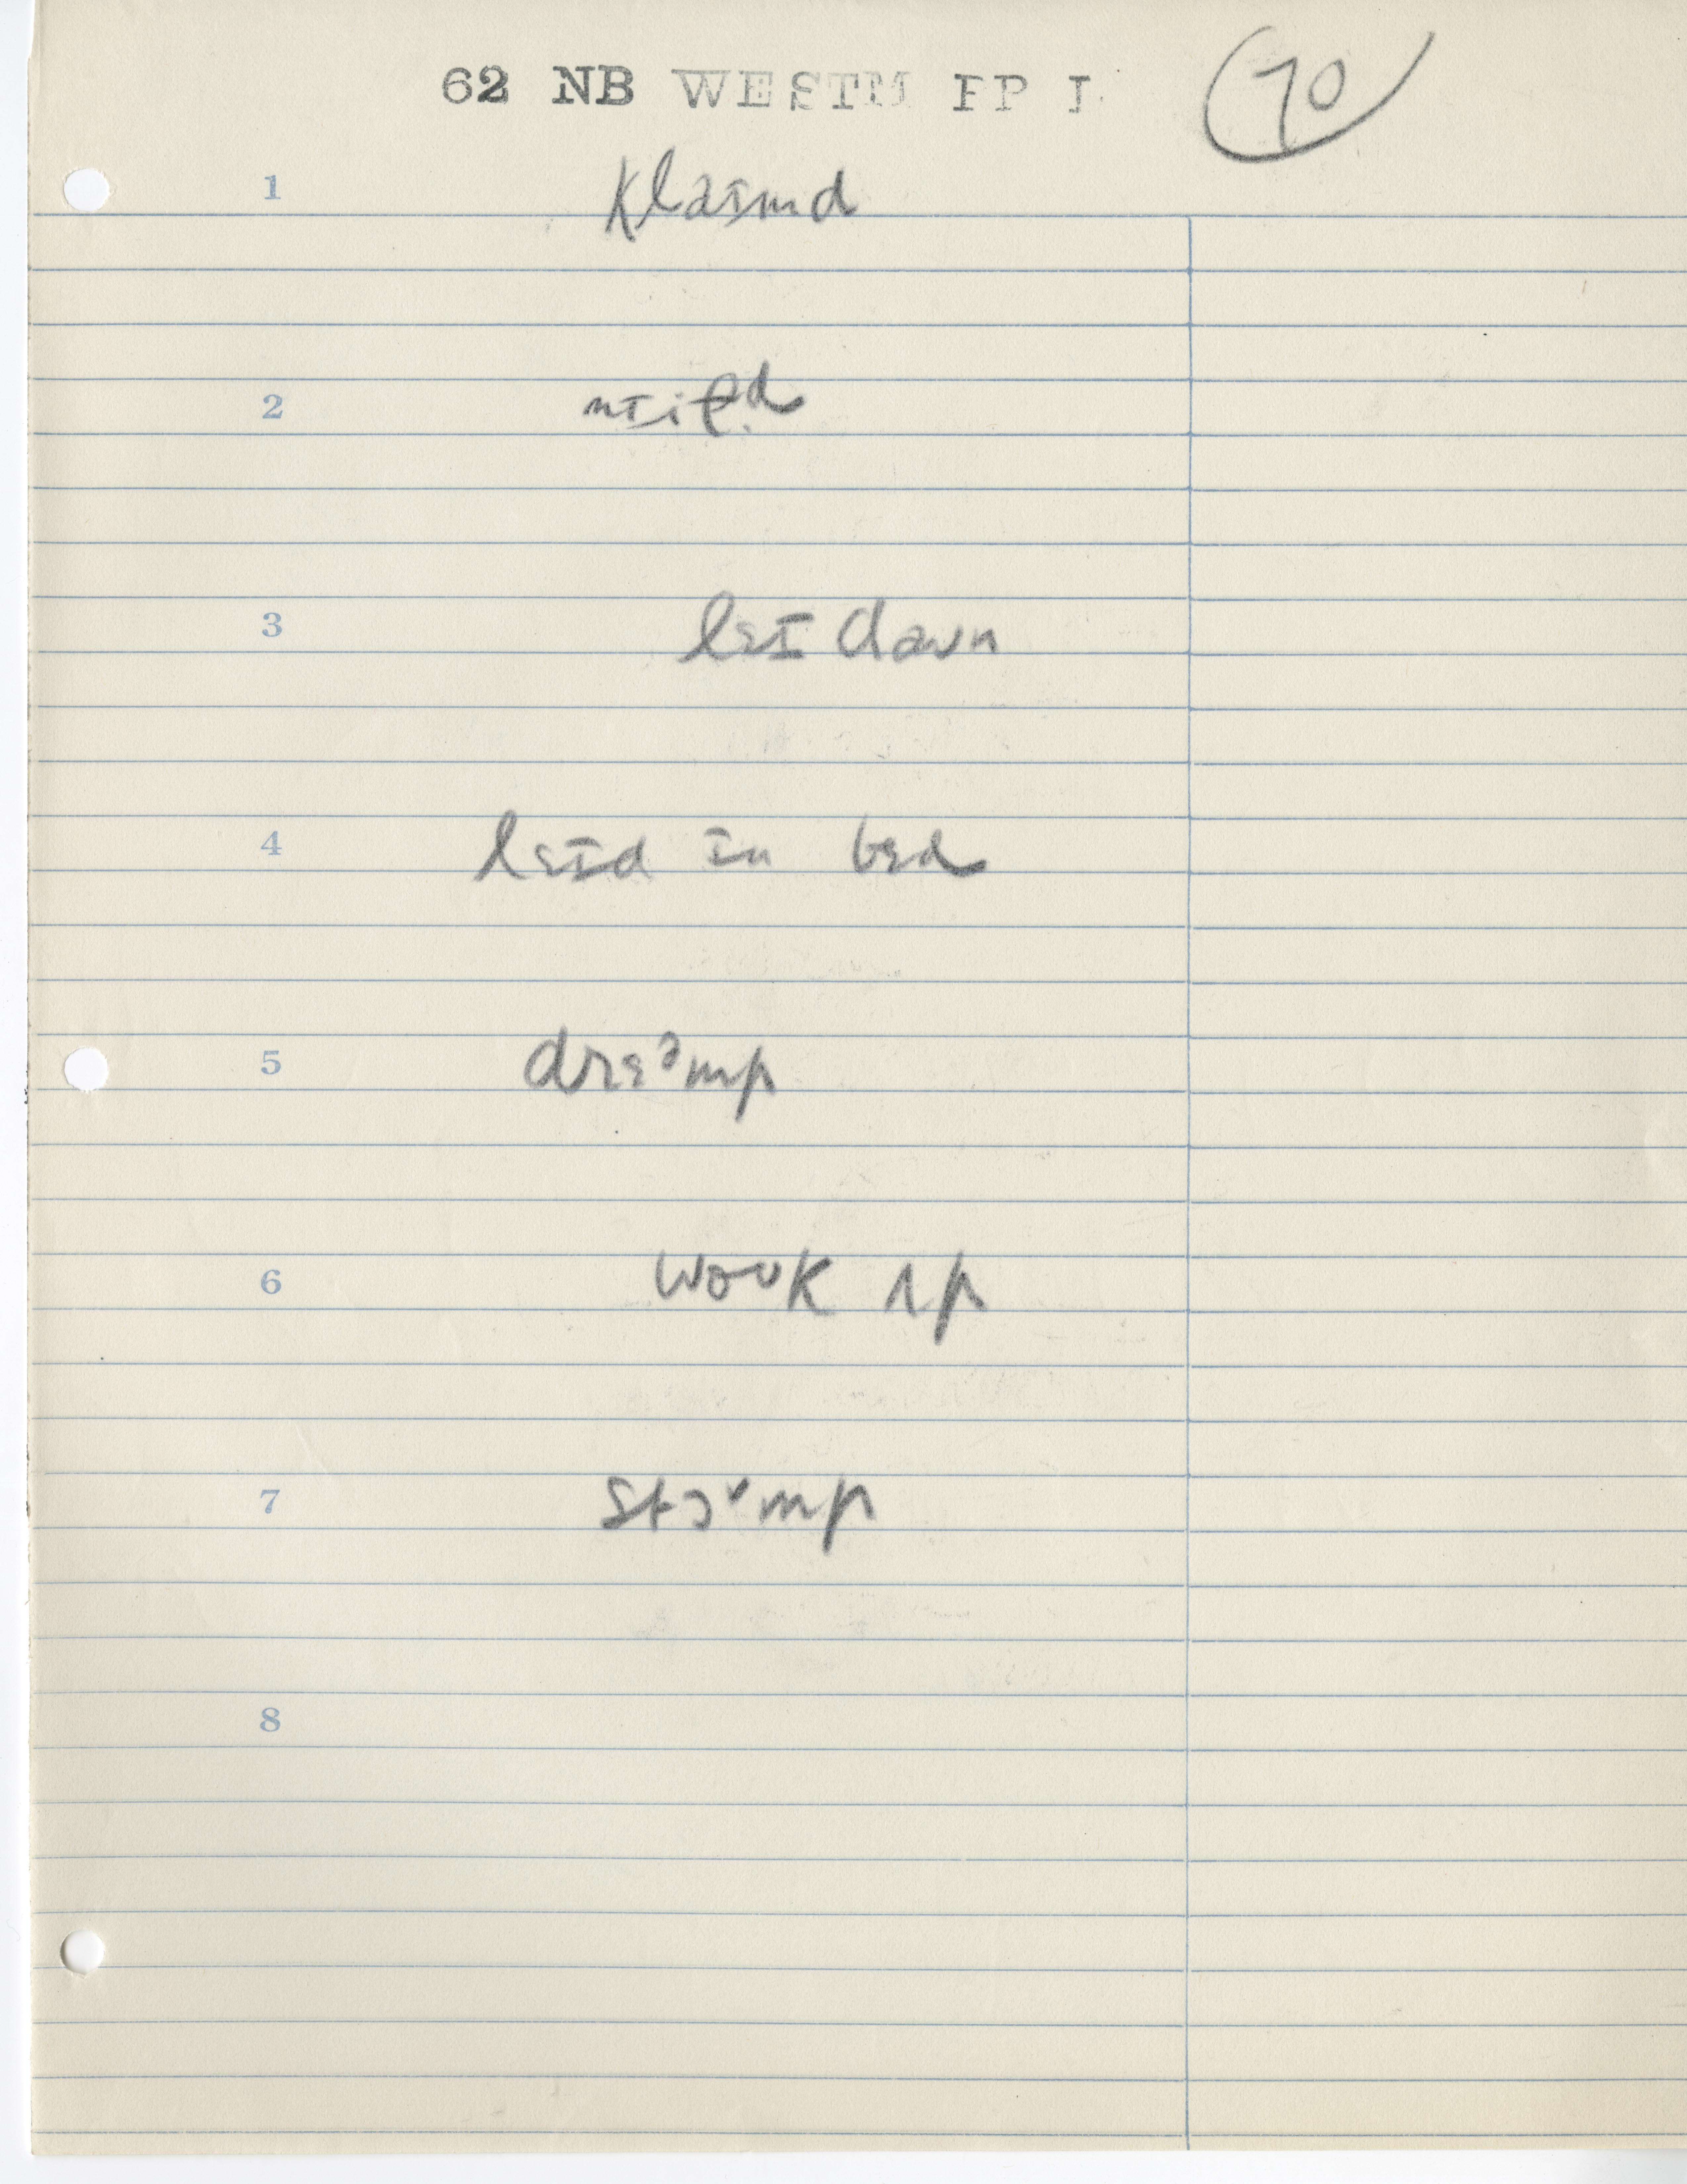 62 NB WESTM PP L
70
1 klaɪmd
2
3 lɛɪ daʊn
4 lɛɪd ɪn bɛd
5 drɛᵊmp
6 woʊk ʌp
7 stɔᶷmp
8